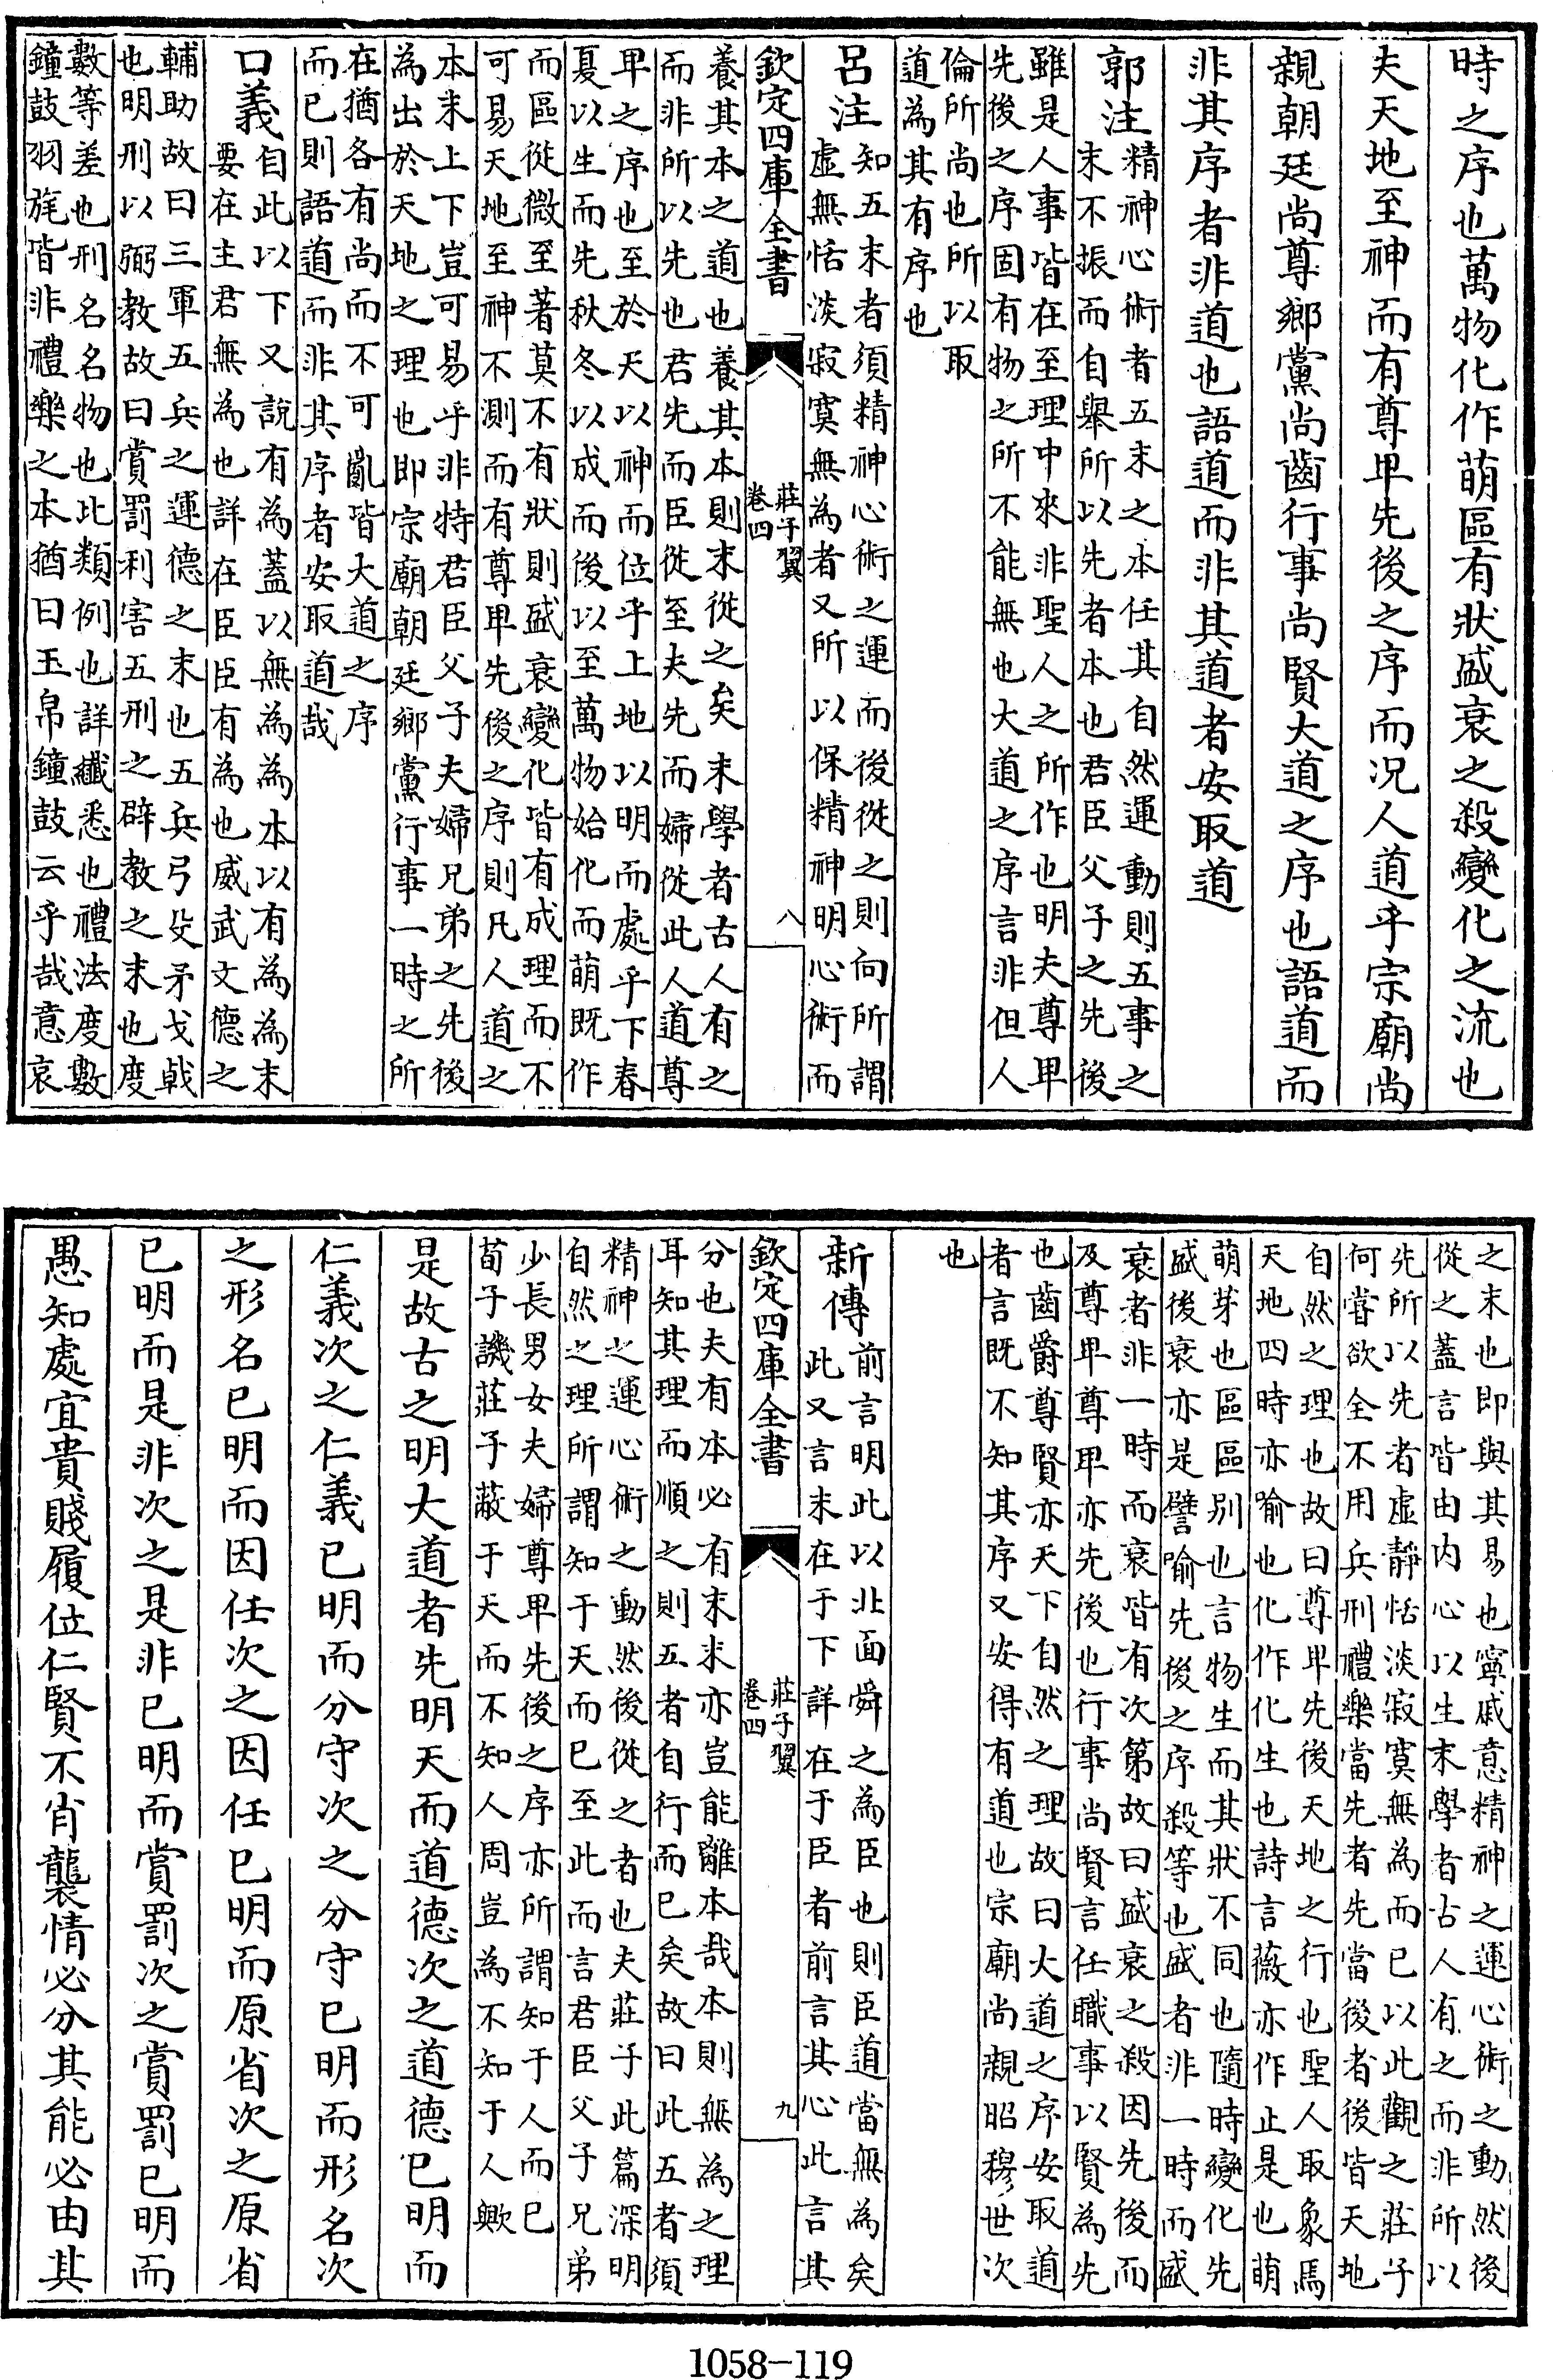 時之序也萬物化作萌區有狀盛衰之殺變化之流也
夫天地至神而有尊卑先後之序而况人道乎宗廟尚
親朝廷尚尊鄉黨尚齒行事尚賢大道之序也語道而
非其序者非道也語道而非其道者安取道
郭注
精神心術者五末之本任其自然運動則五事之
末不振而自舉所以先者本也君臣父子之先後
雖是人事皆在至理中來非聖人之所作也明夫尊卑
先後之序固有物之所不能無也大道之序言非但人
倫所尚也所以取
道為其有序也
呂注
知五末者須精神心術之運而後從之則向所謂
虛無恬淡寂寞無為者又所以保精神明心術而
欽定四庫全書
莊子翼
卷四
八
養其本之道也養其本則末從之矣末學者古人有之
而非所以先也君先而臣從至夫先而婦從此人道尊
卑之序也至於天以神而位乎上地以明而處乎下春
夏以生而先秋冬以成而後以至萬物始化而萌既作
而區從微至著莫不有狀則盛衰變化皆有成理而不
可易天地至神不測而有尊卑先後之序則凡人道之
本末上下豈可易乎非特君臣父子夫婦兄弟之先後
為出於天地之理也即宗廟朝廷鄉黨行事一時之所
在猶各有尚而不可亂皆大道之序
而已則語道而非其序者安取道哉
口義
自此以下又說有為蓋以無為為本以有為為末
要在主君無為也詳在臣臣有為也威武文德之
輔助故曰三軍五兵之運德之末也五兵弓殳矛戈戟
也明刑以弼教故曰賞罰利害五刑之辟教之末也度
數等差也刑名名物也比類例也詳纖悉也禮法度數
鐘鼓羽旄皆非禮樂之本猶曰玉帛鐘鼓云乎哉意哀
之末也即與其易也寧戚意精神之運心術之動然後
從之蓋言皆由内心以生末學者古人有之而非所以
先所以先者虛靜恬淡寂寞無為而已以此觀之莊子
何嘗欲全不用兵刑禮樂當先者先當後者後皆天地
自然之理也故曰尊卑先後天地之行也聖人取象焉
天地四時亦喻也化作化生也詩言薇亦作止是也萌
萌芽也區區别也言物生而其狀不同也隨時變化先
盛後衰亦是譬喻先後之序殺等也盛者非一時而盛
衰者非一時而衰皆有次第故曰盛衰之殺因先後而
及尊卑尊卑亦先後也行事尚賢言任職事以賢為先
也齒爵尊賢亦天下自然之理故曰大道之序安取道
者言既不知其序又安得有道也宗廟尚親昭穆世次
也
新傳
前言明此以北面舜之為臣也則臣道當無為矣
此又言末在于下詳在于臣者前言其心此言其
欽定四庫全書
莊子翼
卷四
九
分也夫有本必有末末亦豈能離本哉本則無為之理
耳知其理而順之則五者自行而已矣故曰此五者須
精神之運心術之動然後從之者也夫莊子此篇深明
自然之理所謂知于天而已至此而言君臣父子兄弟
少長男女夫婦尊卑先後之序亦所謂知于人而已
荀子譏莊子蔽于天而不知人周豈為不知于人歟
是故古之明大道者先明天而道德次之道德已明而
仁義次之仁義已明而分守次之分守已明而形名次
之形名已明而因任次之因任已明而原省次之原省
已明而是非次之是非已明而賞罰次之賞罰已明而
愚知處宜貴賤履位仁賢不肖襲情必分其能必由其
1058-119